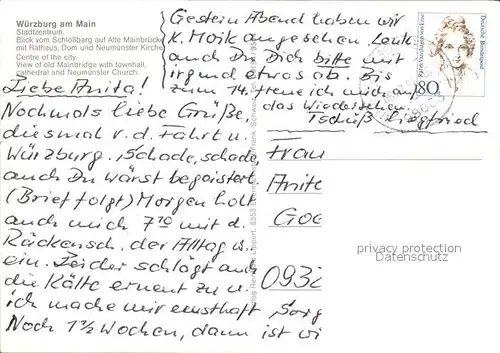 Würzburg am Main
Stadtzentrum.
Blick vom Schloßberg auf Alte Mainbrücke
mit Rathaus, Dom und Neumünster Kirche
Centre of the city.
View of old Mainbridge with townhall,
cathedral and Neumünster Church.
Liebe Anita!
Nochmals liebe Grüße,
diesmal v. d. Fahrt n.
Würzburg. Schade, schade,
auch Du wärst begeistert.
(Brief folgt) Morgen holt
auch mich 7 10 mit d.
Rückensch. der Alltag w.
ein. Leider schlägt auch
die Kälte erneut zu u.
ich mache mir ernsthaft Sorg
Noch 1½ Wochen, dann ist wi
Gestern Abend haben wir
K. Moik angesehen. Lenk
auch Du Dich bitte mit
irgend etwas ab. Bis
zum 14. freue ich mich auf
das Wiedersehen.
Tschüß Siegfried
Deutsche Bundespost
80
Frau
Anite
Goe
0932
privacy protection
Datenschutz